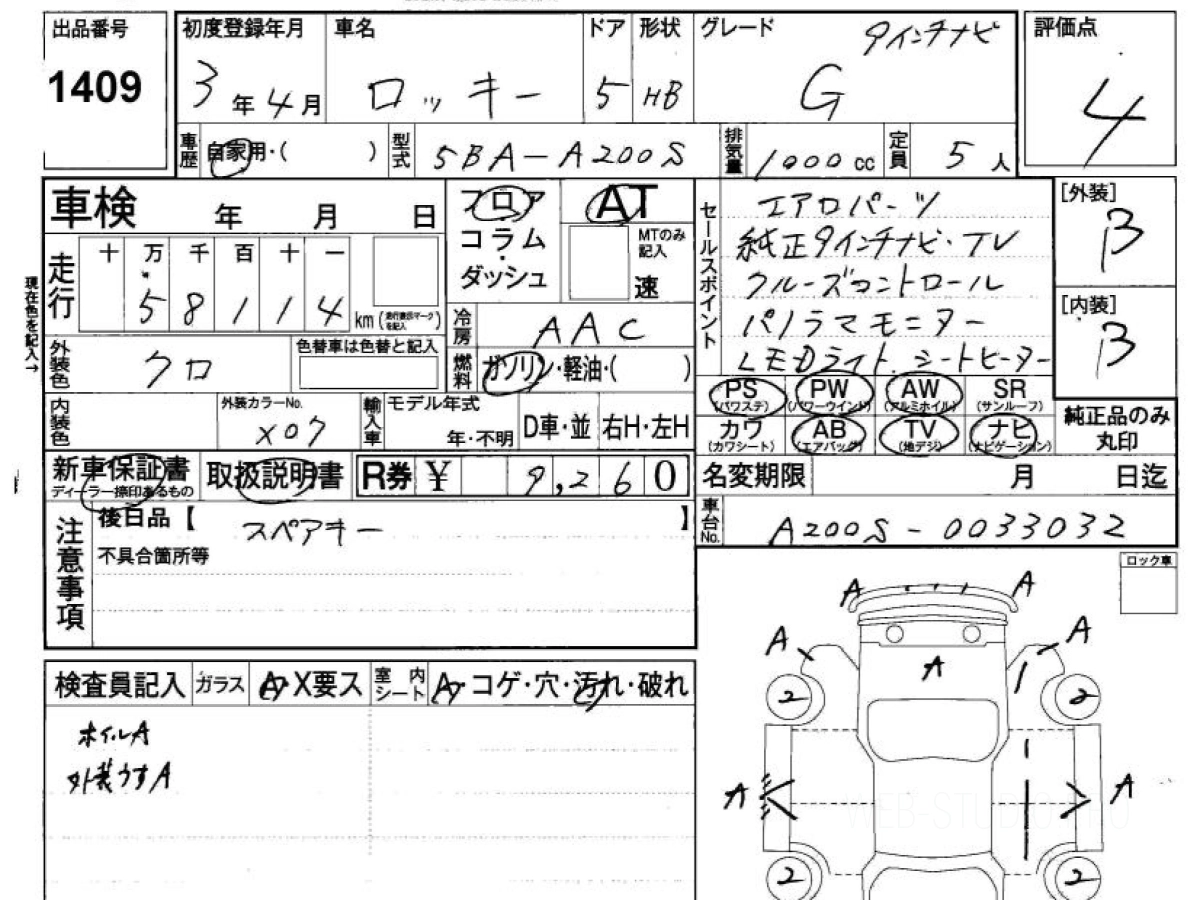 出品番号 初度登録年月 車名 ドア 形状 グレード 9インチナビ 評価点
1409 3年4月 ロッキー 5 HB G 4
車歴 自家用・( ) 型式 5BA-A200S 排気量 1000cc 定員 5人
車検 年 月 日
フロア AT
コラム・ダッシュ MTのみ記入 速
セールスポイント
エアロパーツ
純正9インチナビ・TV
クルーズコントロール
パノラマモニター
LEDライト、シートヒーター
[外装] B
[内装] B
現在色を記入→
走行 十 万 千 百 十 一
5 8 1 1 4 km (走行表示マークを記入)
冷房 AAC
外装色 クロ 色替車は色替と記入
燃料 ガソリン・軽油・( )
PS (パワステ) PW (パワーウインド) AW (アルミホイル) SR (サンルーフ)
カワ (カワシート) AB (エアバッグ) TV (地デジ) ナビ (ナビゲーション)
純正品のみ丸印
内装色 外装カラーNo. X07 輸入車 モデル年式 年・不明 D車・並 右H・左H
新車保証書 ディーラー捺印あるもの 取扱説明書 R券 ¥ 9,260
名変期限 月 日迄
車台No. A200S-0033032
注意事項
後日品【 スペアキー 】
不具合箇所等
ロック車
検査員記入 ガラス A・X要ス 室内シート A・コゲ・穴・汚れ・破れ
ホイルA
外装うすA
A A
A A A
2 2
A A
2 2
WEB-STUDIO.PRO